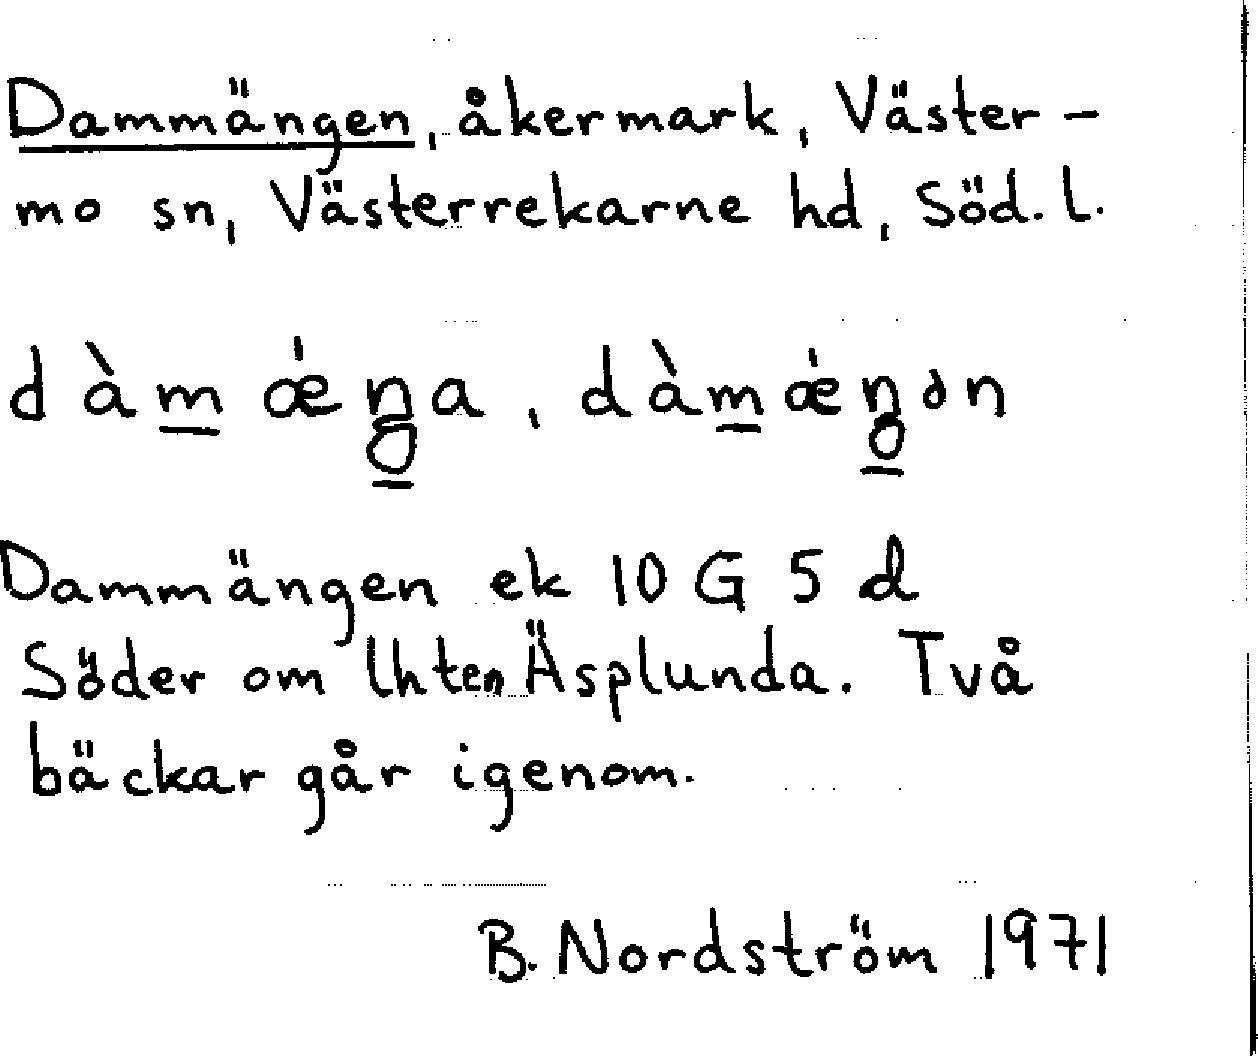 Dammängen, åkermark, Väster-
mo sn, Västerrekarne hd, Söd. l.
dàm̲ ǽŋ̲a, dàm̲ǽŋ̲ən
Dammängen ek 10 G 5 d
Söder om lhten Äsplunda. Två
bäckar går igenom.
B. Nordström 1971